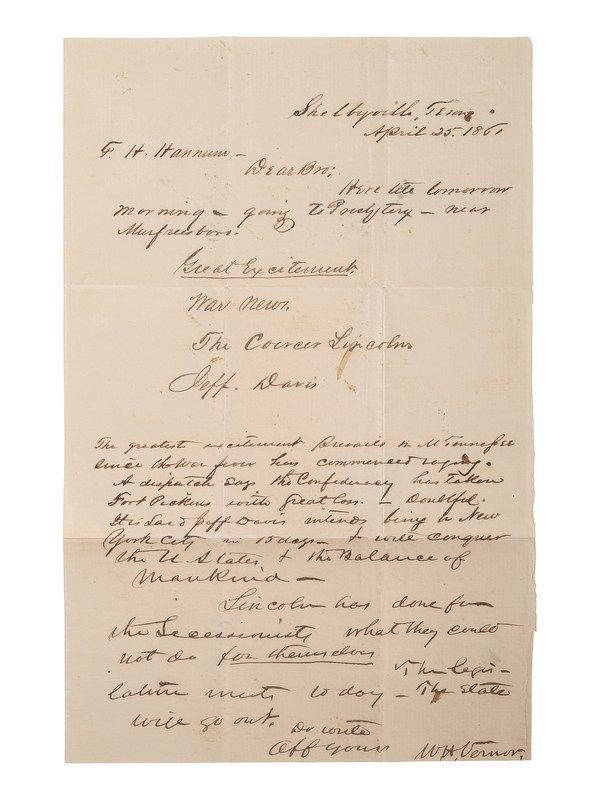 Shelbyville, Tenn.
April 25. 1861
F. H. Hannum —
Dear Bro;
Here till tomorrow
morning — going to Presbytery — near
Murfreesboro.
Great Excitement.
War News.
The Coercer Lincoln
Jeff. Davis
The greatest excitement prevails in M Tennessee
since the war fever has commenced raging.
A dispatch says the Confederacy has taken
Fort Pickens with great loss. — Doubtful.
It is said Jeff Davis intends being in New
York City in 15 days — & will conquer
the U States, & the Balance of
Mankind —
Lincoln has done for
the Secessionists what they could
not do for themselves
The legis-
lature meets to day — The State
will go out. Do write
Aff yours W. H. Vernor.